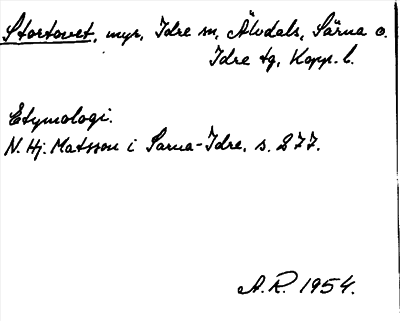 Stortovet, myr, Idre sn, Älvdals, Särna o.
Idre tg, Kopp. l.
Etymologi.
N. Hj. Matsson i Särna-Idre, s. 277.
A.R. 1954.